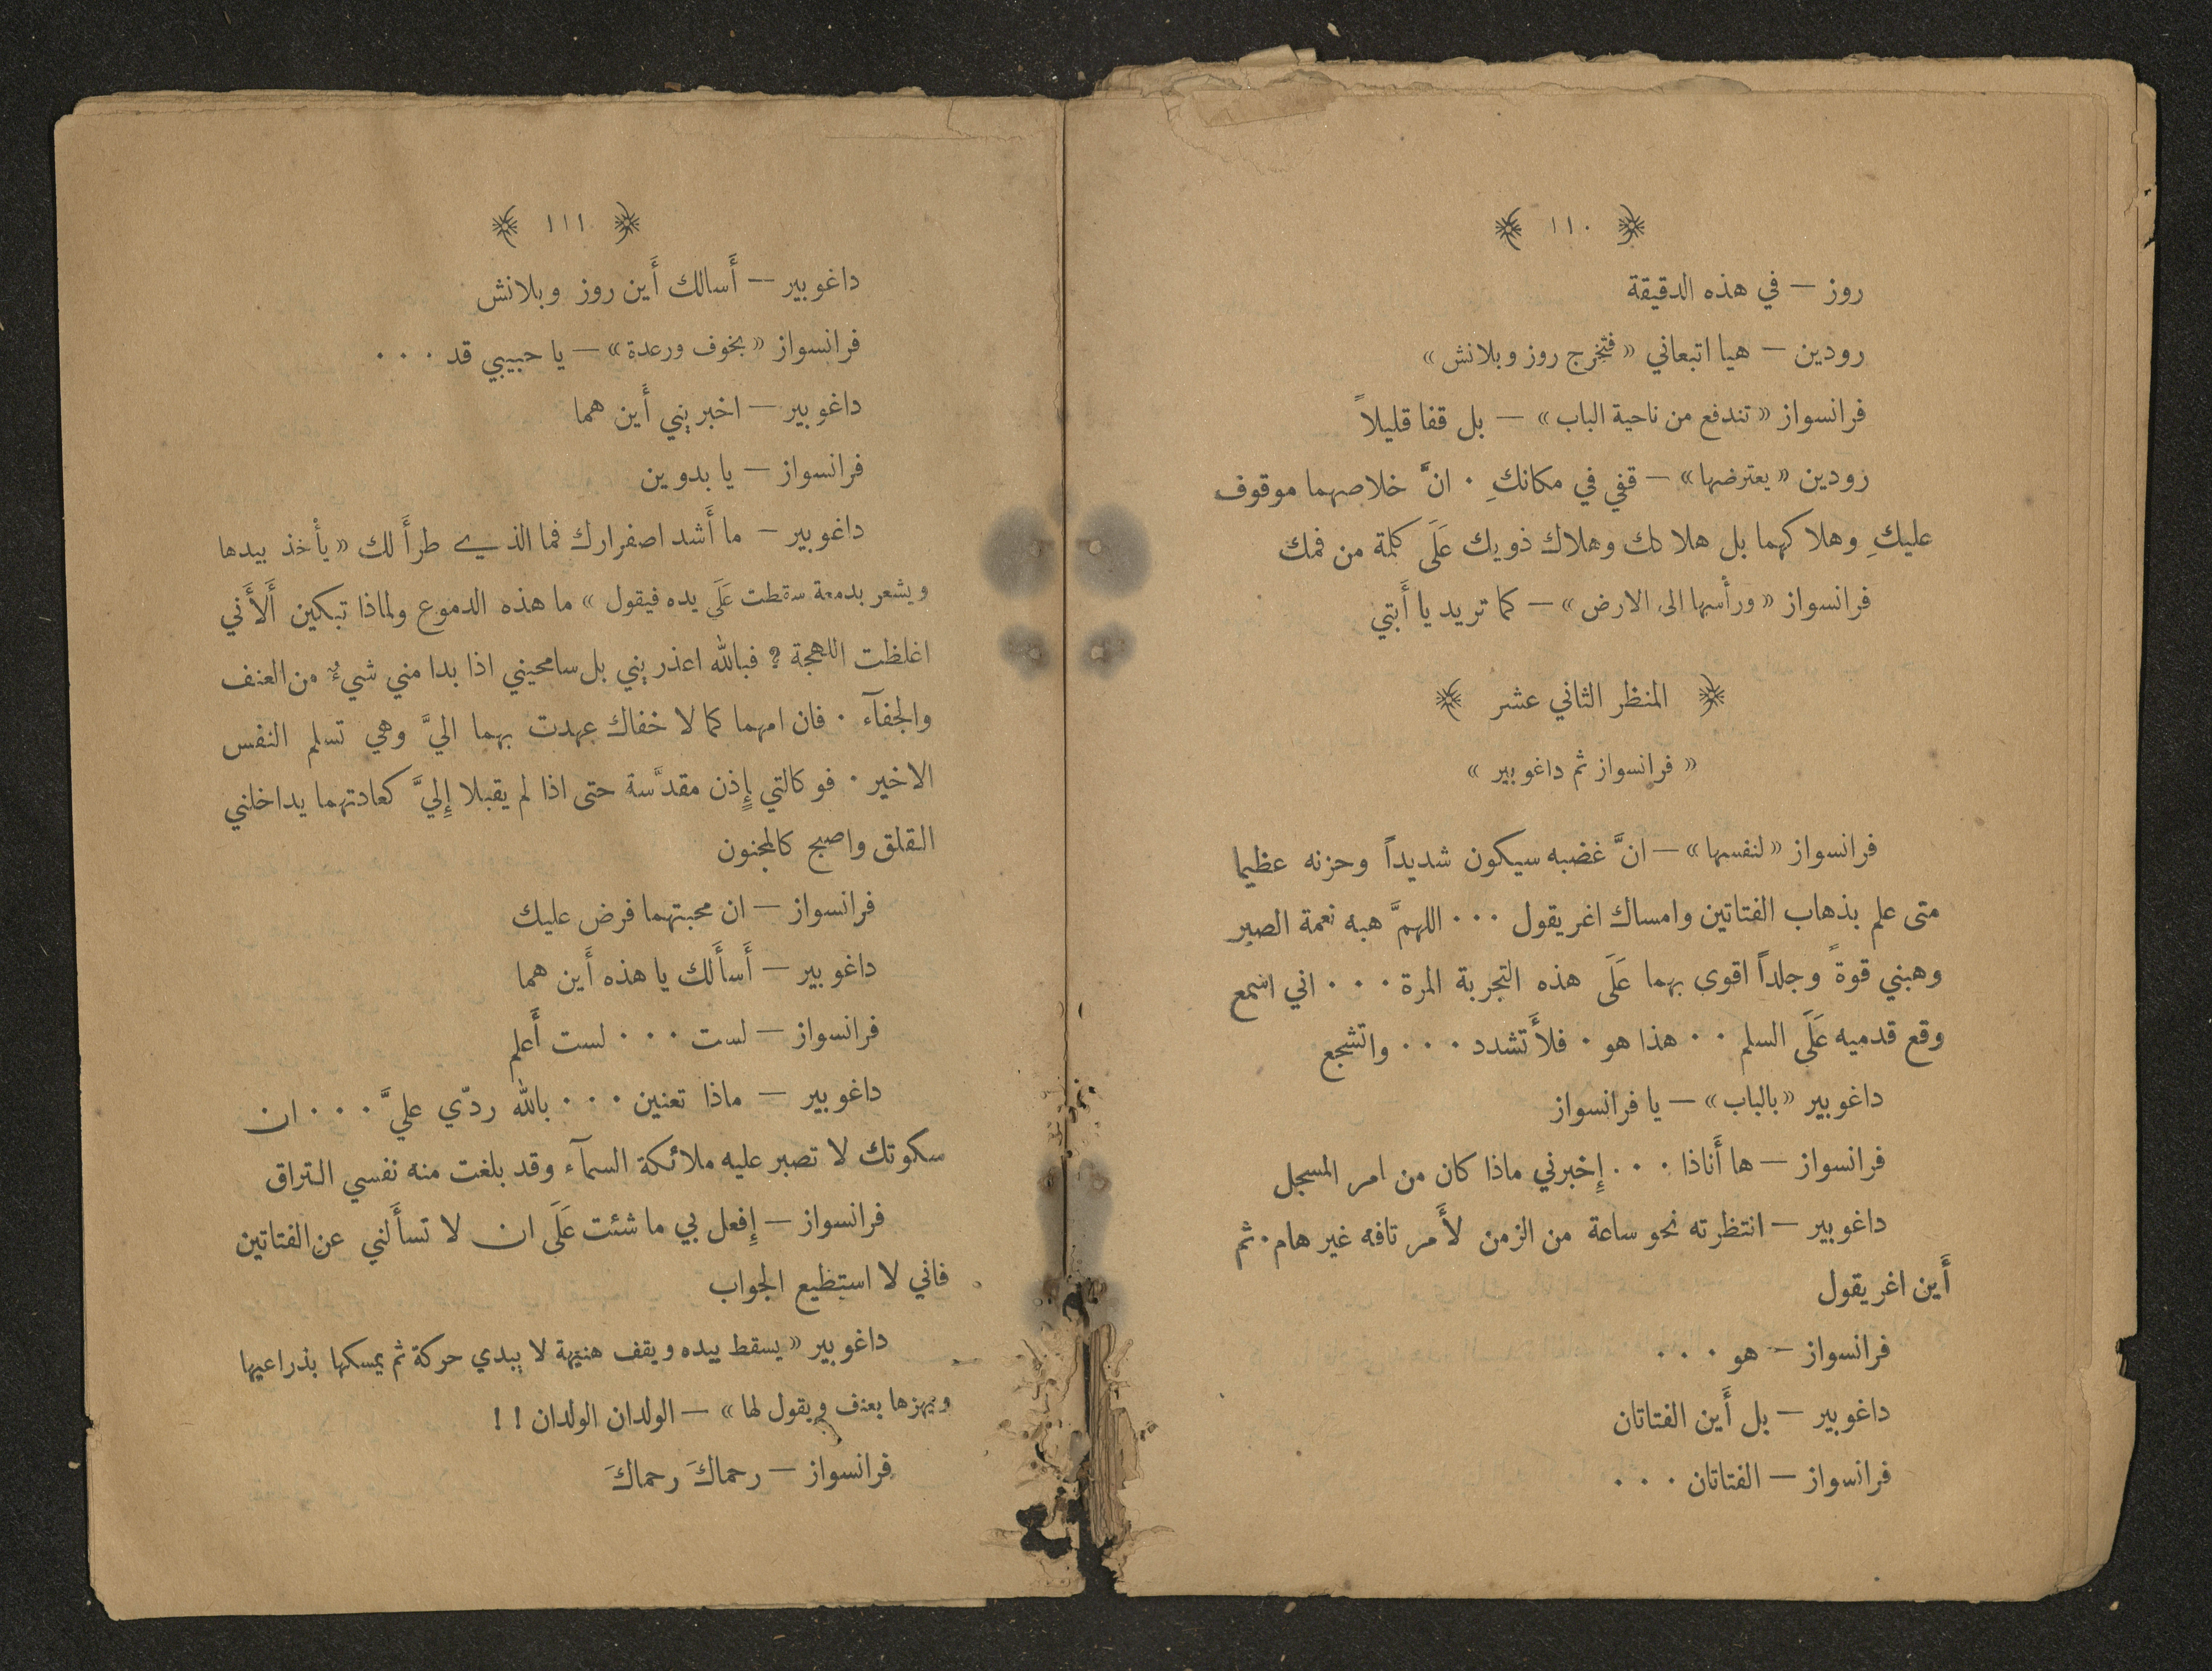 ﴿ ١١٠ ﴾
روز — في هذه الدقيقة
رودين — هيا اتبعاني « فتخرج روز وبلانش »
فرانسواز « تندفع من ناحية الباب » — بل قفا قليلاً
رودين « يعترضها » — قفي في مكانكِ . انَّ خلاصهما موقوف
عليكِ وهلاكهما بل هلاكك وهلاك ذويك عَلَى كلمة من فمك
فرانسواز « ورأسها الى الارض » — كما تريد يا أَبتي
﴿ المنظر الثاني عشر ﴾
« فرانسواز ثم داغوبير »
فرانسواز « لنفسها » — انَّ غضبه سيكون شديداً وحزنه عظيما
متى علم بذهاب الفتاتين وامساك اغريقول . . . اللهمَّ هبه نعمة الصبر
وهبني قوةً وجلداً اقوى بهما عَلَى هذه التجربة المرة . . . اني اسمع
وقع قدميه عَلَى السلم . . هذا هو . فلأَتشدد . . . واتشجع
داغوبير « بالباب » — يا فرانسواز
فرانسواز — ها أَناذا . . . إِخبرني ماذا كان من امر المسجل
داغوبير — انتظرته نحو ساعة من الزمن لأَمر تافه غير هام . ثم
أَين اغريقول
فرانسواز — هو . . .
داغوبير — بل أَين الفتاتان
فرانسواز — الفتاتان . . .
﴿ ١١١ ﴾
داغوبير — أَسالك أَين روز وبلانش
فرانسواز « بخوف ورعدة » — يا حبيبي قد . . .
داغوبير — اخبريني أَين هما
فرانسواز — يا بدوين
داغوبير — ما أَشد اصفرارك فما الذي طرأَ لك « يأخذ بيدها
ويشعر بدمعة سقطت عَلَى يده فيقول » ما هذه الدموع ولماذا تبكين أَلأَني
اغلظت اللهجة ؟ فبالله اعذريني بل سامحيني اذا بدا مني شيءٌ من العنف
والجفآء . فان امهما كما لا خفاك عهدت بهما اليَّ وهي تسلم النفس
الاخير . فوكالتي إِذن مقدَّسة حتى اذا لم يقبلا إِليَّ كعادتهما يداخلني
القلق واصبح كالمجنون
فرانسواز — ان محبتهما فرض عليك
داغوبير — أَسأَلك يا هذه أَين هما
فرانسواز — لست . . . لست أَعلم
داغوبير — ماذا تعنين . . . بالله ردّي عليَّ . . . ان
سكوتك لا تصبر عليه ملائكة السمآء وقد بلغت منه نفسي التراق
فرانسواز — إِفعل بي ما شئت عَلَى ان لا تسأَلني عن الفتاتين
فاني لا استطيع الجواب
داغوبير « يسقط بيده ويقف هنيهة لا يبدي حركة ثم يمسكها بذراعيها
ويهزها بعنف ويقول لها » — الولدان الولدان ! !
فرانسواز — رحماكَ رحماكَ